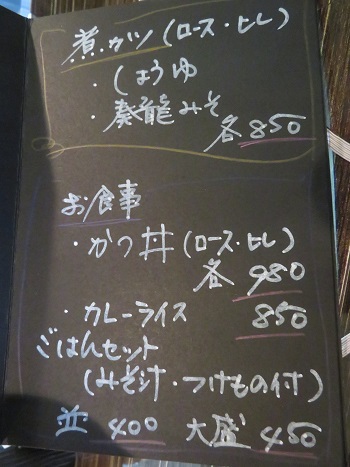 煮カツ(ロース・ヒレ)
・しょうゆ
・葵龍みそ
各850
お食事
・かつ丼(ロース・ヒレ)
各 980
・カレーライス 850
ごはんセット
(みそ汁・つけもの付)
並 400 大盛 450